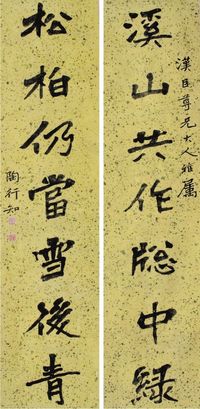 漢臣尊兄大人雅屬
溪山共作牕中綠
松柏仍當雪後青
陶行知